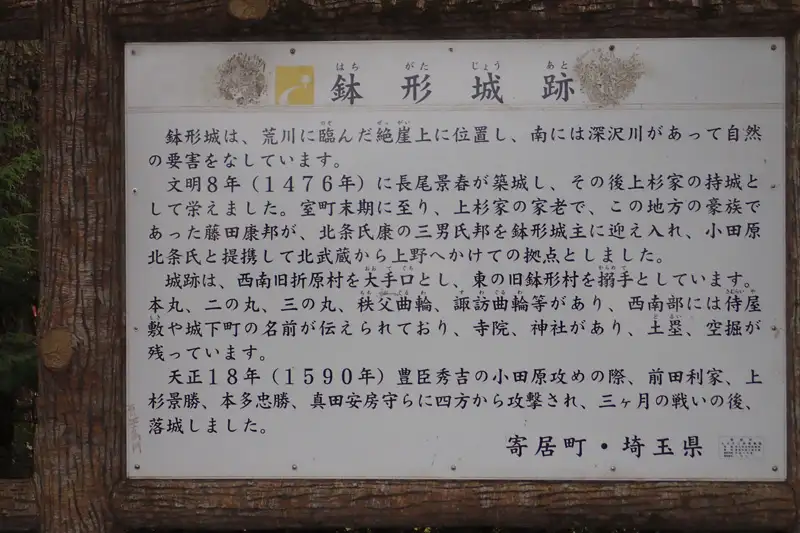 鉢形城跡
鉢形城は、荒川に臨んだ絶崖上に位置し、南には深沢川があって自然
の要害をなしています。
文明8年（1476年）に長尾景春が築城し、その後上杉家の持城と
して栄えました。室町末期に至り、上杉家の家老で、この地方の豪族で
あった藤田康邦が、北条氏康の三男氏邦を鉢形城主に迎え入れ、小田原
北条氏と提携して北武蔵から上野へかけての拠点としました。
城跡は、西南旧折原村を大手口とし、東の旧鉢形村を搦手としています。
本丸、二の丸、三の丸、秩父曲輪、諏訪曲輪等があり、西南部には侍屋
敷や城下町の名前が伝えられており、寺院、神社があり、土塁、空掘が
残っています。
天正18年（1590年）豊臣秀吉の小田原攻めの際、前田利家、上
杉景勝、本多忠勝、真田安房守らに四方から攻撃され、三ヶ月の戦いの後、
落城しました。
寄居町・埼玉県